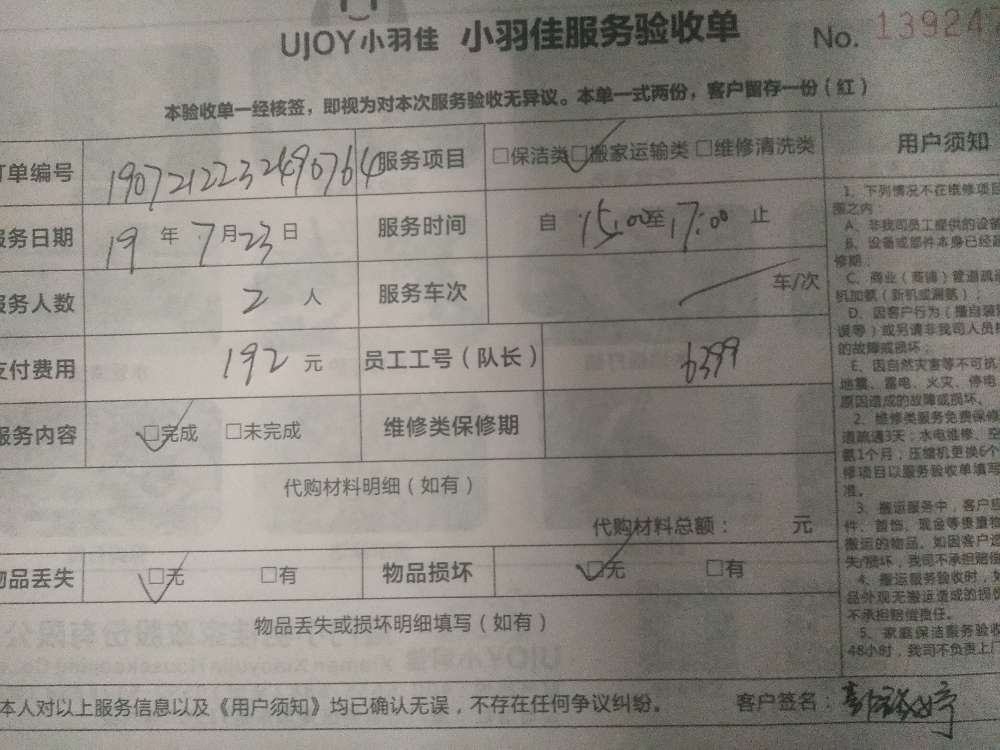 UJOY小羽佳 小羽佳服务验收单 No. 13924
本验收单一经核签，即视为对本次服务验收无异议。本单一式两份，客户留存一份（红）
订单编号 1907212232490764 服务项目 □保洁类 ☑搬家运输类 □维修清洗类
服务日期 19 年 7 月 23 日 服务时间 自 15:00 至 17:00 止
服务人数 2 人 服务车次 / 车/次
支付费用 192 元 员工工号（队长） 6399
服务内容 ☑完成 □未完成 维修类保修期
代购材料明细（如有）
代购材料总额： 元
物品丢失 ☑无 □有 物品损坏 ☑无 □有
物品丢失或损坏明细填写（如有）
本人对以上服务信息以及《用户须知》均已确认无误，不存在任何争议纠纷。 客户签名：
用户须知
1、下列情况不在维修项目
围之内：
A、非我司员工提供的设备
B、设备或部件本身已经超
修期；
C、商业（商铺）管道疏
机加氨（新机或漏氨）；
D、因客户行为（擅自装
误等）或另请非我司人员
的故障或损坏；
E、因自然灾害等不可抗
地震、雷电、火灾、停电
原因造成的故障或损坏。
2、维修类服务免费保修
道疏通3天；水电维修、空
氨1个月；压缩机更换6个
修项目以服务验收单填写
准。
3、搬运服务中，客户应
件、首饰、现金等贵重物
搬运的物品。如因客户
失/损坏，我司不承担赔偿
4、搬运服务验收时，
品外观无搬运造成的损
不承担赔偿责任。
5、家庭保洁服务验收
48小时，我司不负责上门